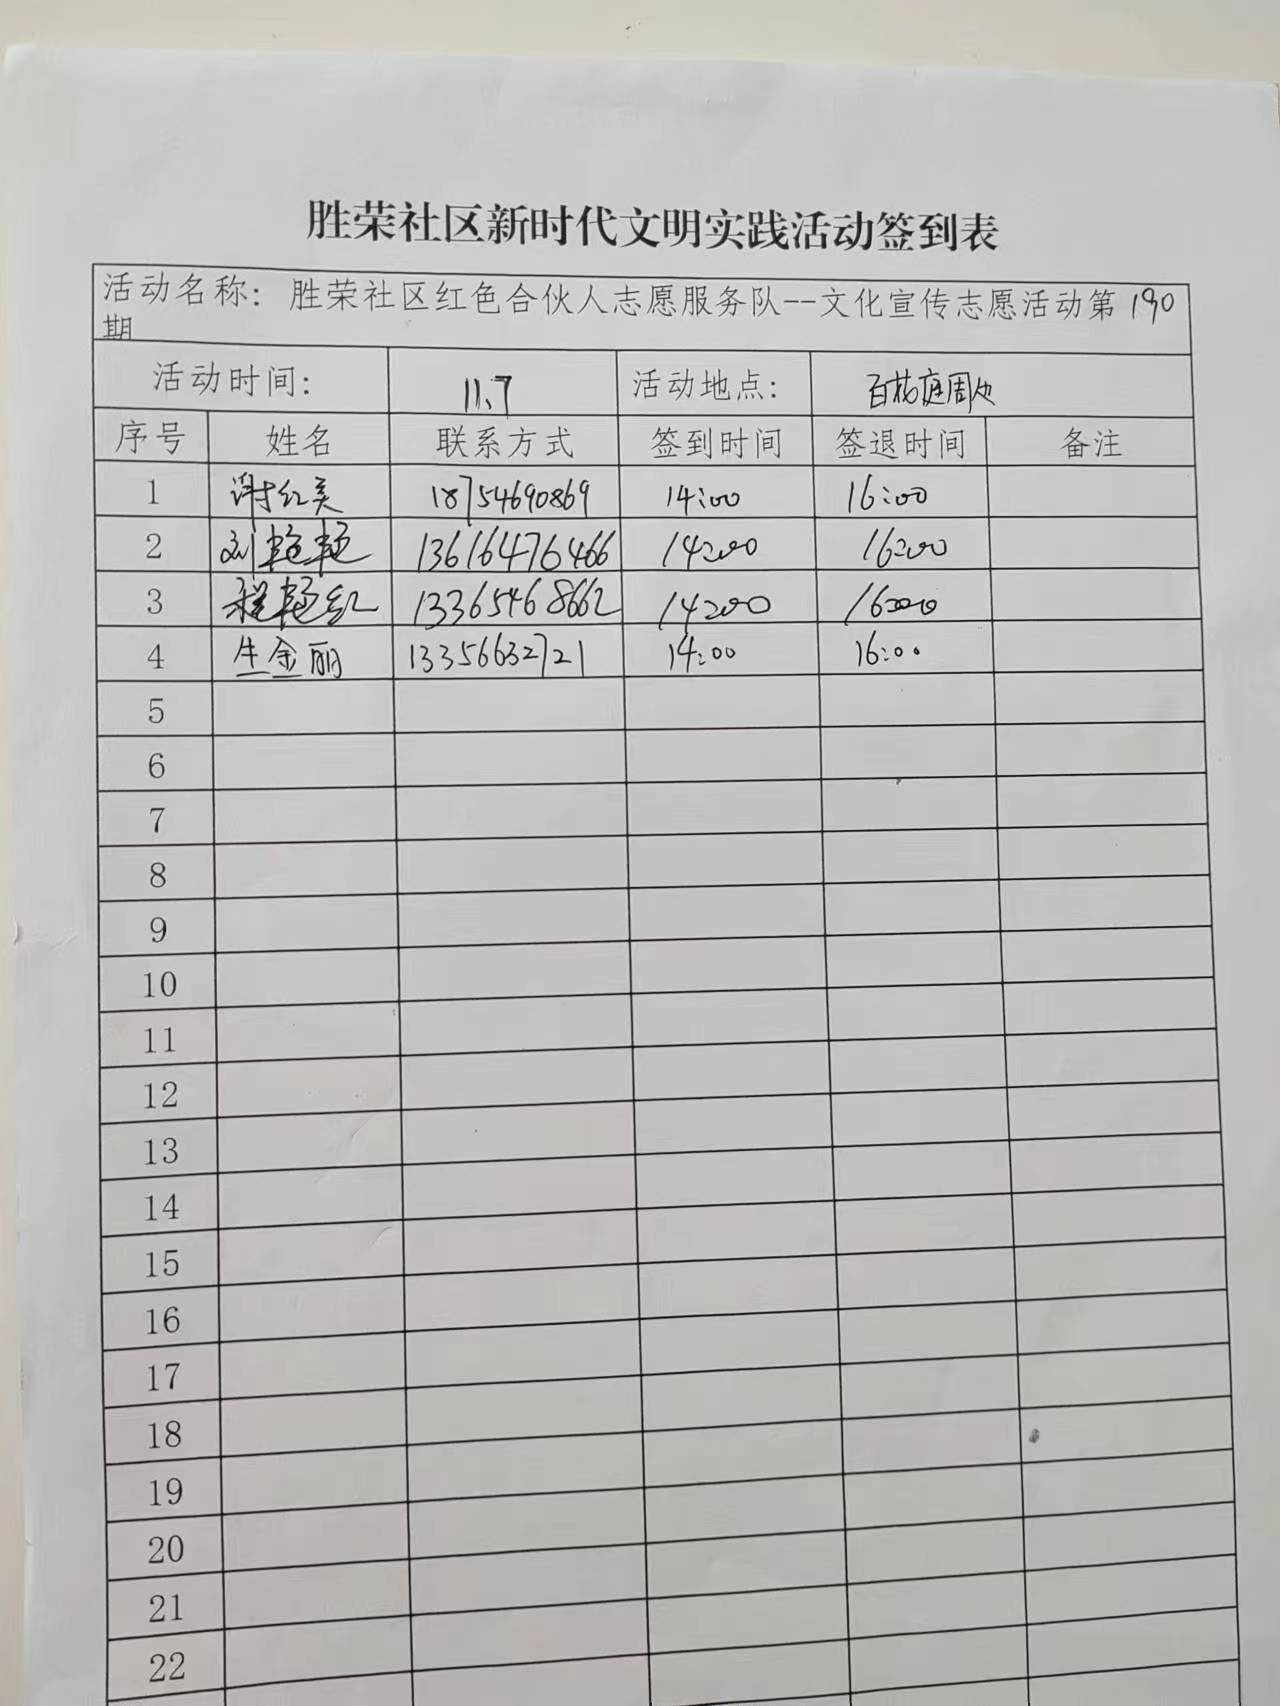 胜荣社区新时代文明实践活动签到表
活动名称：胜荣社区红色合伙人志愿服务队--文化宣传志愿活动第190
期
活动时间: 11.7 活动地点: 百格庭周边
序号 姓名 联系方式 签到时间 签退时间 备注
1 谢红美 18754690869 14:00 16:00
2 刘艳艳 13616476466 14:00 16:00
3 程艳红 13365468662 14:00 16:00
4 生金丽 13356632721 14:00 16:00
5
6
7
8
9
10
11
12
13
14
15
16
17
18
19
20
21
22